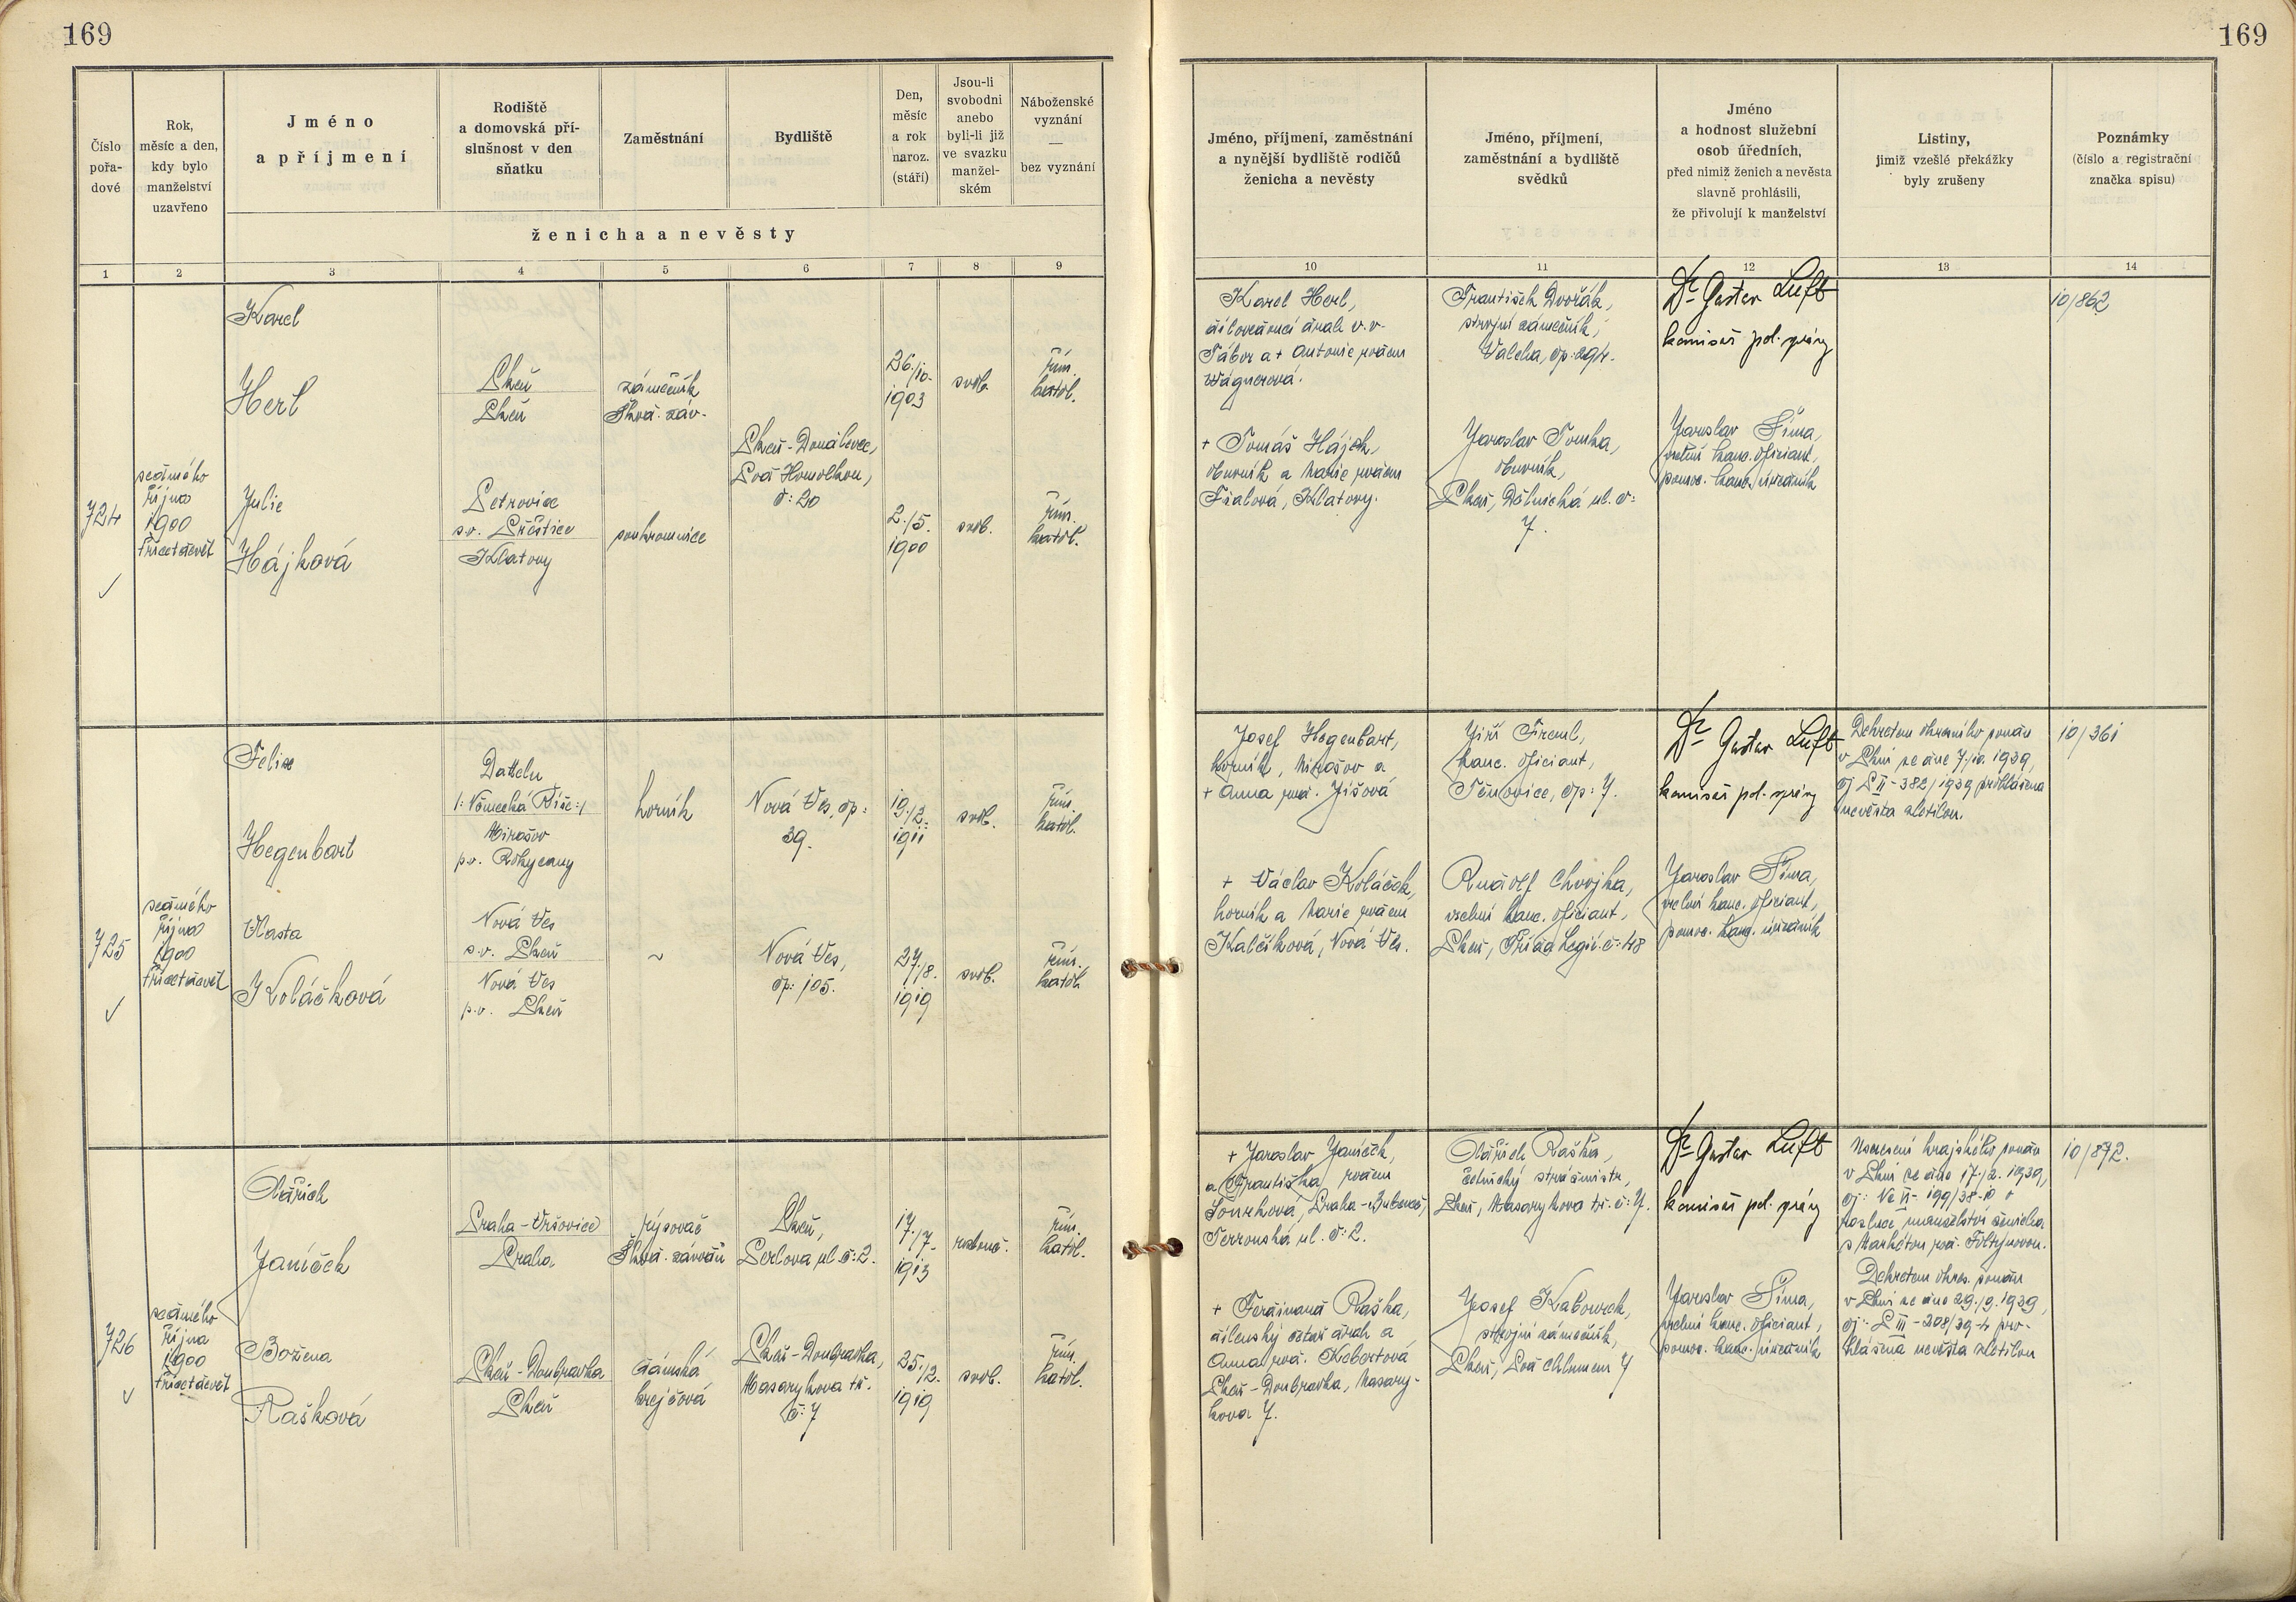 169
169
Číslo pořa-dové
Rok, měsíc a den, kdy bylo manželství uzavřeno
Jméno a příjmení
Rodiště a domovská pří-slušnost v den sňatku
Zaměstnání
Bydliště
Den, měsíc a rok naroz. (stáří)
Jsou-li svobodni anebo byli-li již ve svazku manžel-ském
Náboženské vyznání — bez vyznání
ženicha a nevěsty
Jméno, příjmení, zaměstnání a nynější bydliště rodičů ženicha a nevěsty
Jméno, příjmení, zaměstnání a bydliště svědků
Jméno a hodnost služební osob úředních, před nimiž ženich a nevěsta slavně prohlásili, že přivolují k manželství
Listiny, jimiž vzešlé překážky byly zrušeny
Poznámky (číslo a registrační značka spisu)
1 2 3 4 5 6 7 8 9 10 11 12 13 14
724
sedmého
října
1900
třicetdevět
Karel
Herl
Plzeň
Plzeň
zámečník
Škod. záv.
Plzeň-Doudlevce,
Pod Homolkou,
č: 20
26./10.
1903
svob.
řím.
katol.
Julie
Hájková
Petrovice
s.o. Přeštice
Klatovy
soukromnice
2./5.
1900
svob.
řím.
katol.
Karel Herl,
dílovedoucí drah v.v.
Tábor a + Antonie rodem
Wágnerová.
+ Tomáš Hájek,
obuvník a Marie rodem
Fialová, Klatovy.
František Dvořák,
strojní zámečník,
Valcha, čp. 294.
Jaroslav Tomka,
obuvník,
Plzeň, Dělnická ul. č:
7.
Dr Gustav Luft
komisař pol. správy
Jaroslav Šíma,
vrchní kanc. oficiant,
pomoc. kanc. úředník
10/862
725
sedmého
října
1900
třicetdevět
Felix
Hegenbart
Datteln
/: Německá Říše :/
Mirošov
p.o. Rokycany
horník
Nová Ves, čp:
39.
19./12.
1911
svob.
řím.
katol.
Vlasta
Koláčková
Nová Ves
s.o. Plzeň
Nová Ves
p.o. Plzeň
~
Nová Ves,
čp: 105.
27./8.
1919
svob.
řím.
katol.
Josef Hegenbart,
horník, Mirošov a
+ Anna rod. Jišová
+ Václav Koláček,
horník a Marie rodem
Kalčíková, Nová Ves.
Jiří Treml,
kanc. oficiant,
Těnovice, čp: 7.
Rudolf Chvojka,
vrchní kanc. oficiant,
Plzeň, Třída Legií č: 48
Dr Gustav Luft
komisař pol. správy
Jaroslav Šíma,
vrchní kanc. oficiant,
pomoc. kanc. úředník
Dekretem okresního soudu
v Plzni ze dne 7./10. 1939,
čj P II - 382/1939 prohlášena
nevěsta zletilou.
10/361
726
sedmého
října
1900
třicetdevět
Oldřich
Janíček
Praha-Vršovice
Praha
rýsovač
Škod. závodů
Plzeň,
Perlova ul č: 2.
17./7.
1913
rozlouč.
řím.
katol.
Božena
Rašková
Plzeň-Doubravka
Plzeň
dámská
krejčová
Plzeň-Doubravka,
Masarykova tř.
č: 7
25./12.
1919
svob.
řím.
katol.
+ Jaroslav Janíček,
a Františka rodem
Praha-Bubeneč,
Terronská ul. č: 2.
+ Ferdinand Raška,
dílenský četař drah a
Anna rod. Kebertová
Plzeň-Doubravka, Masary-
kova 7.
Oldřich Raška,
četnický strážmistr,
Plzeň, Masarykova tř. č: 7.
Josef Kabourek,
strojní zámečník,
Plzeň, Pod Chlumem 7
Dr Gustav Luft
komisař pol. správy
Jaroslav Šíma,
vrchní kanc. oficiant,
pomoc. kanc. úředník
Usnesení krajského soudu
v Plzni ze dne 17./2. 1939,
čj: Nc VI - 199/38-10 o
rozluce manželství ženicha
s Markétou rod. Foltýnovou.
Dekretem okres. soudu
v Plzni ze dne 29./9. 1939,
čj: P III - 208/39-4 pro-
hlášena nevěsta zletilou
10/892.